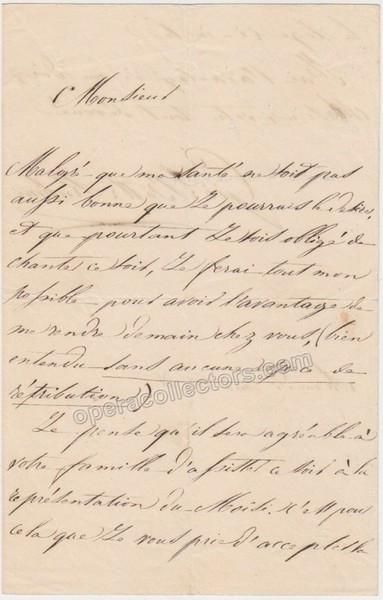 Monsieur
Malgré que ma santé ne soit pas
aussi bonne que Je pourrais le désirer,
et que pourtant Je sois obligé de
chanter ce soir, Je ferai tout mon
possible pour avoir l'avantage de
me rendre demain chez vous, (bien
entendu sans aucune espèce de
rétribution)
operacollectors.com
Je pense qu'il sera agréable à
votre famille d'assister ce soir à la
représentation du
c'est pour
cela que Je vous prie d'accepter la